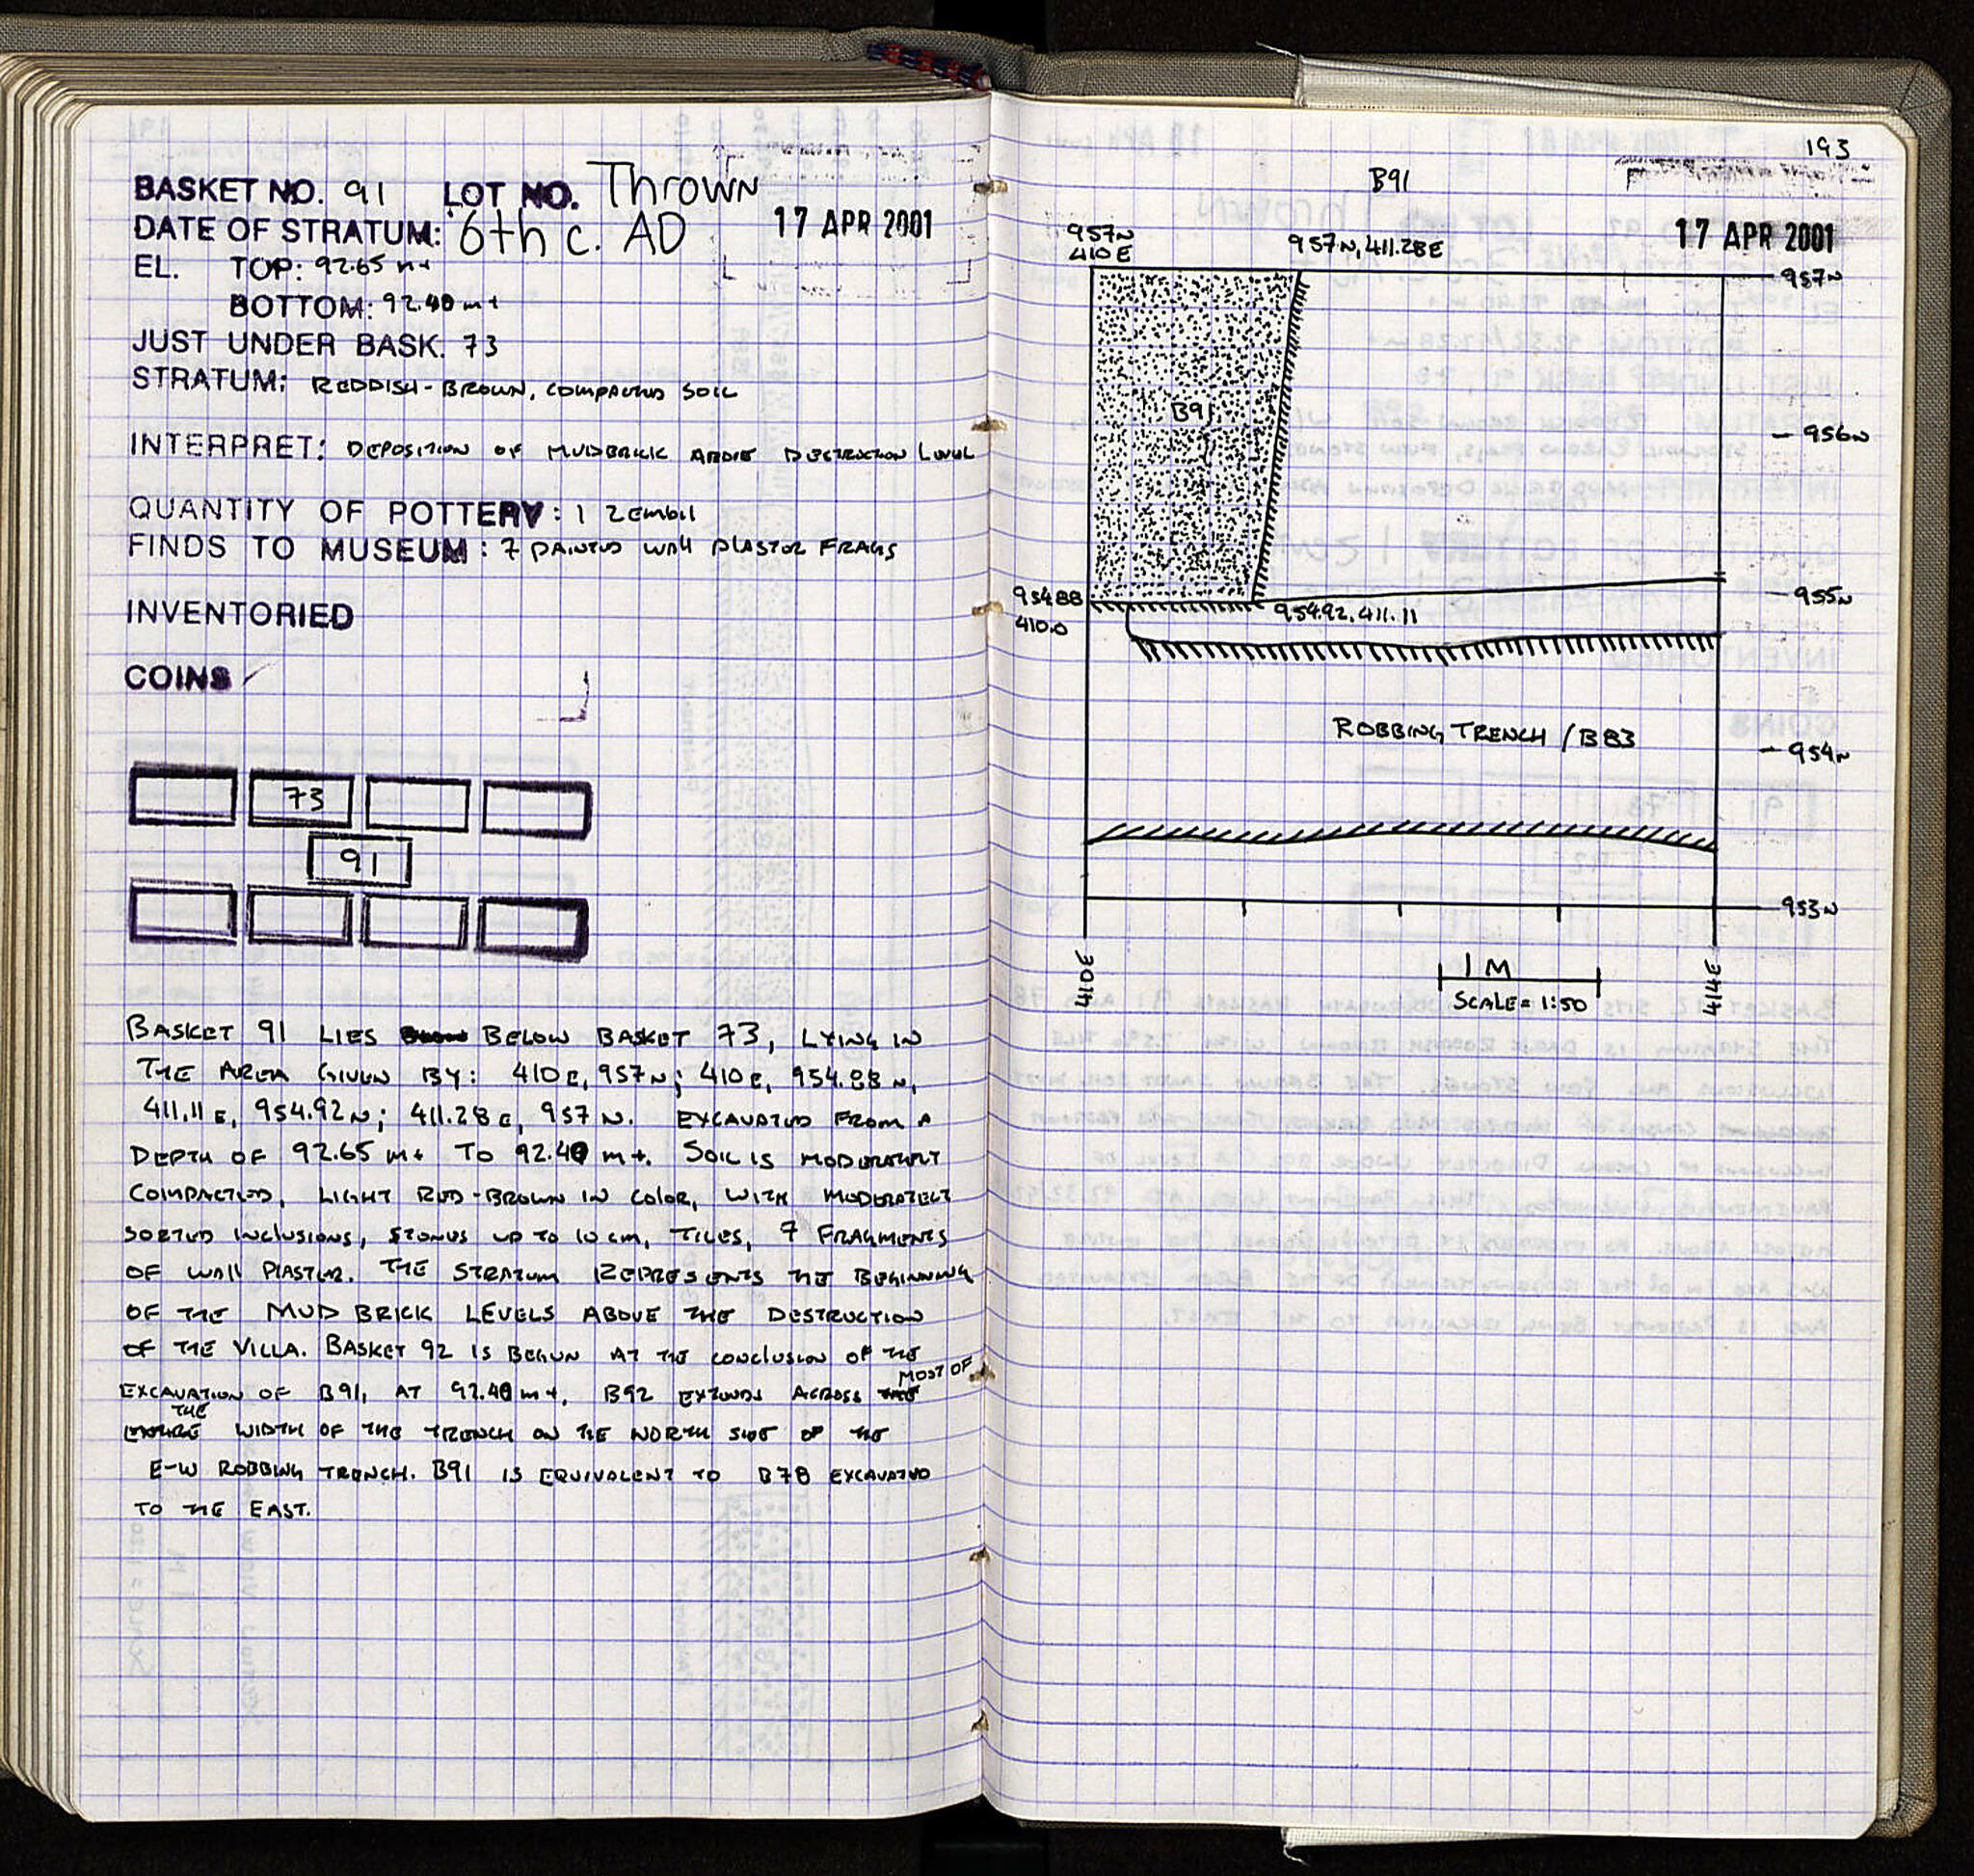 BASKET NO. 91 LOT NO. Thrown
DATE OF STRATUM: 6th c. AD 17 APR 2001
EL. TOP: 92.65 m+
BOTTOM: 92.40 m+
JUST UNDER BASK. 73
STRATUM: REDDISH-BROWN, COMPACTED SOIL
INTERPRET: DEPOSITION OF MUDBRICK ABOVE DESTRUCTION LEVEL
QUANTITY OF POTTERY: 1 ZEMBIL
FINDS TO MUSEUM: 7 PAINTED WALL PLASTER FRAGS
INVENTORIED
COINS
73
91
BASKET 91 LIES BELOW BASKET 73, LYING IN
THE AREA GIVEN BY: 410E, 957N; 410E, 954.88N,
411.11E, 954.92N; 411.28E, 957N. EXCAVATED FROM A
DEPTH OF 92.65 m+ TO 92.40 m+. SOIL IS MODERATELY
COMPACTED, LIGHT RED-BROWN IN COLOR, WITH MODERATELY
SORTED INCLUSIONS, STONES UP TO 10 cm, TILES, 7 FRAGMENTS
OF WALL PLASTER. THE STRATUM REPRESENTS THE BEGINNING
OF THE MUD BRICK LEVELS ABOVE THE DESTRUCTION
OF THE VILLA. BASKET 92 IS BEGUN AT THE CONCLUSION OF THE
EXCAVATION OF B91, AT 92.40 m+. B92 EXTENDS ACROSS MOST OF
THE WIDTH OF THE TRENCH ON THE NORTH SIDE OF THE
E-W ROBBING TRENCH. B91 IS EQUIVALENT TO B78 EXCAVATED
TO THE EAST.
193
B91
17 APR 2001
957N
410E
957N, 411.28E
957N
B91
956N
954.88
410.0
954.92, 411.11
955N
ROBBING TRENCH / B83
954N
953N
410E
1 M
SCALE = 1:50
414E